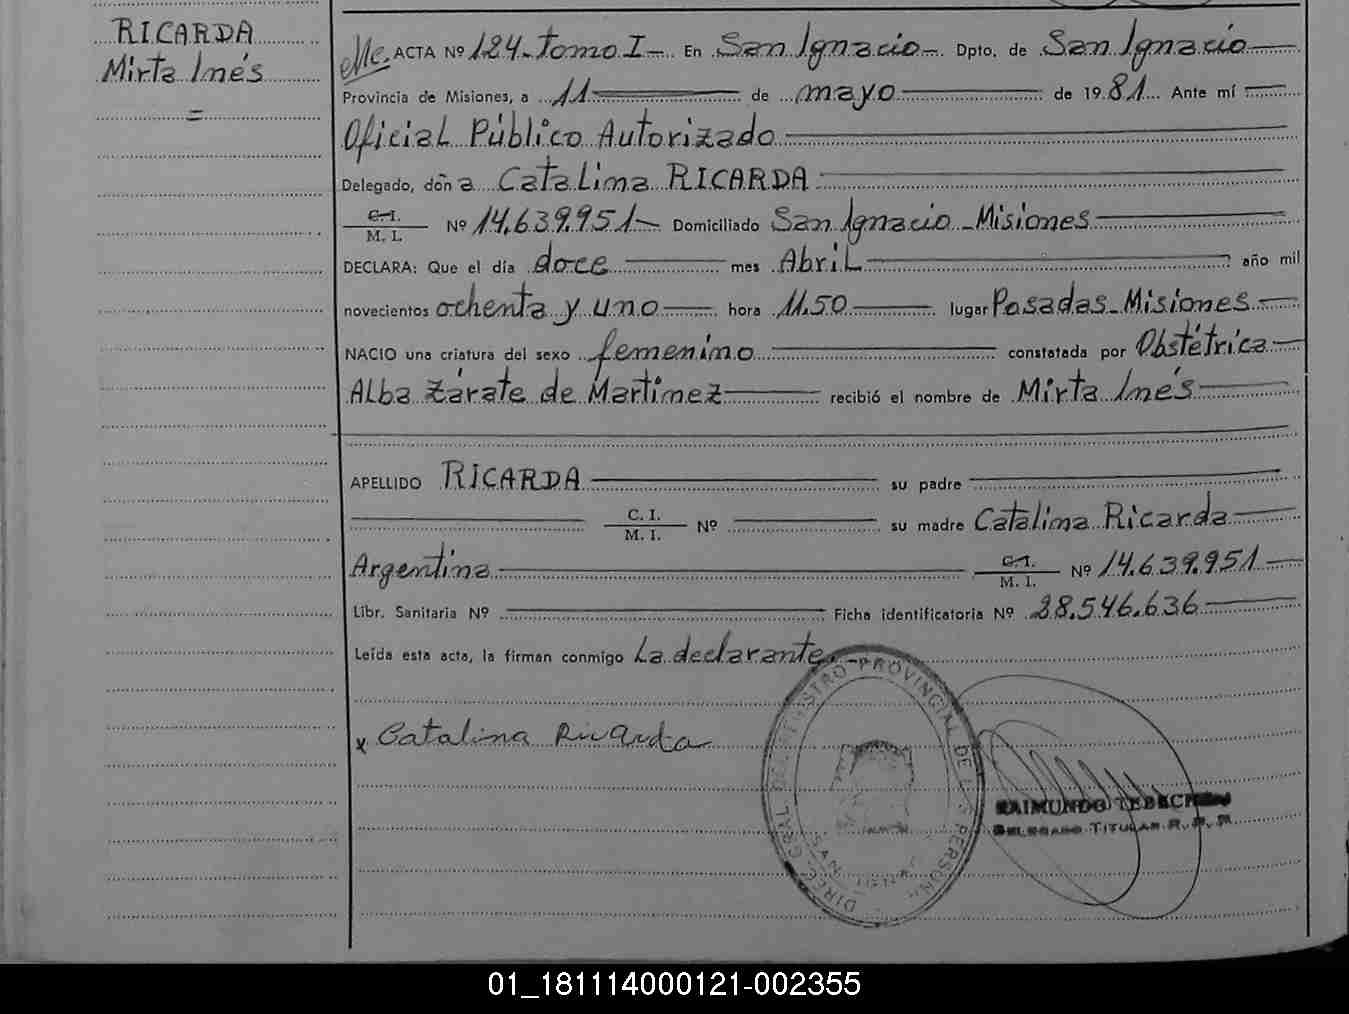 RICARDA
Mirta Inés
=
ACTA Nº 124 - Tomo I - En San Ignacio - Dpto. de San Ignacio
Provincia de Misiones, a 11 de mayo de 1981 Ante mí
Oficial Público Autorizado
Delegado, doña Catalina RICARDA
C. I. / M. I. Nº 14.639.951 - Domiciliado San Ignacio - Misiones
DECLARA: Que el día doce mes Abril año mil
novecientos ochenta y uno hora 11.50 lugar Posadas - Misiones
NACIO una criatura del sexo femenino constatada por Obstétrica
Alba Zárate de Martinez recibió el nombre de Mirta Inés
APELLIDO RICARDA su padre
C. I. / M. I. Nº su madre Catalina Ricarda
Argentina C. I. / M. I. Nº 14.639.951
Libr. Sanitaria Nº Ficha identificatoria Nº 28.546.636
Leída esta acta, la firman conmigo La declarante.-
x Catalina Ricarda
DIREC. GRAL. DEL REGISTRO PROVINCIAL DE LAS PERSONAS
SAN IGNACIO
RAIMUNDO
DELEGADO TITULAR R. P. P.
01_181114000121-002355